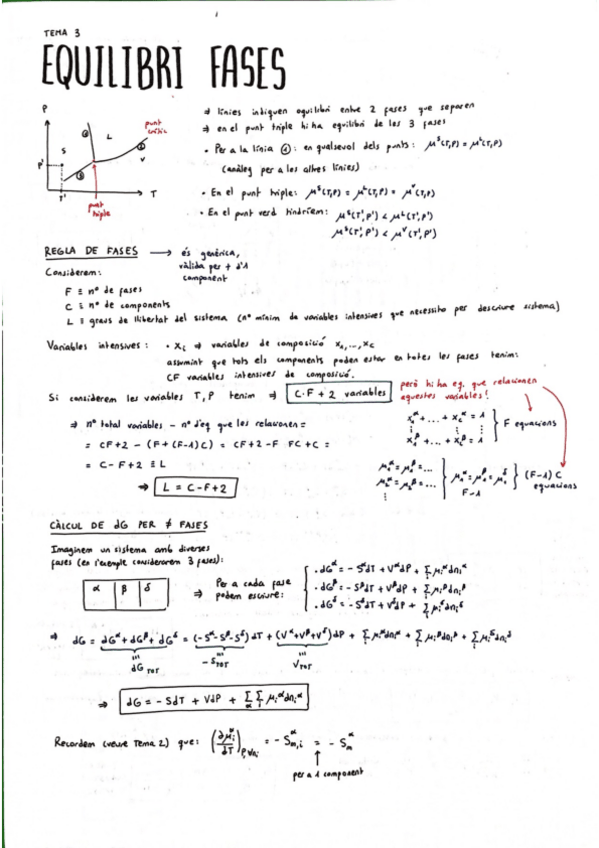 TEMA 3
EQUILIBRI FASES
P
punt crític
S
L
V
P'
T'
T
punt triple
⇒ línies indiquen equilibri entre 2 fases que separen
⇒ en el punt triple hi ha equilibri de les 3 fases
• Per a la línia ①: en qualsevol dels punts: μˢ(T,P) = μᴸ(T,P)
(anàleg per a les altres línies)
• En el punt triple: μˢ(T,P) = μᴸ(T,P) = μⱽ(T,P)
• En el punt verd tindríem: μˢ(T',P') < μᴸ(T',P')
μˢ(T',P') < μⱽ(T',P')
REGLA DE FASES → és genèrica,
vàlida per + d'1
component
Considerem:
F ≡ nº de fases
C ≡ nº de components
L ≡ graus de llibertat del sistema (nº mínim de variables intensives que necessito per descriure sistema)
Variables intensives: • xᵢ ⇒ variables de composició x₁,...,x_C
assumint que tots els components poden estar en totes les fases tenim:
CF variables intensives de composició.
Si considerem les variables T, P tenim ⇒ C·F + 2 variables
però hi ha eq. que relacionen
aquestes variables!
⇒ nº total variables − nº d'eq que les relacionen =
= CF+2 − (F + (F-1)C) = CF+2 - F FC + C =
= C-F+2 ≡ L
⇒ L = C-F+2
x₁^α + ... + x_C^α = 1
⋮ ⋮ ⋮
x₁^β + ... + x_C^β = 1
F equacions
μ₁^α = μ₁^β = ...
μ₂^α = μ₂^β = ...
⋮
μ₁^α = μ₁^β = μ₁^δ
F-1
(F-1) C
equacions
CÀLCUL DE dG PER ≠ FASES
Imaginem un sistema amb diverses
fases (en l'exemple considerarem 3 fases):
α β δ
⇒ Per a cada fase
podem escriure:
• dG^α = - S^α dT + V^α dP + Σᵢ μᵢ^α dnᵢ^α
• dG^β = - S^β dT + V^β dP + Σᵢ μᵢ^β dnᵢ^β
• dG^δ = - S^δ dT + V^δ dP + Σᵢ μᵢ^δ dnᵢ^δ
⇒ dG = dG^α + dG^β + dG^δ = (-S^α - S^β - S^δ) dT + (V^α + V^β + V^δ) dP + Σᵢ μᵢ^α dnᵢ^α + Σᵢ μᵢ^β dnᵢ^β + Σᵢ μᵢ^δ dnᵢ^δ
dG TOT
-S TOT
V TOT
⇒ dG = - SdT + VdP + Σ_α Σᵢ μᵢ^α dnᵢ^α
Recordem (veure Tema 2) que: (∂μᵢ^α/dT)_P,∀nᵢ = - S^α_m,i = - S^α_m
per a 1 component